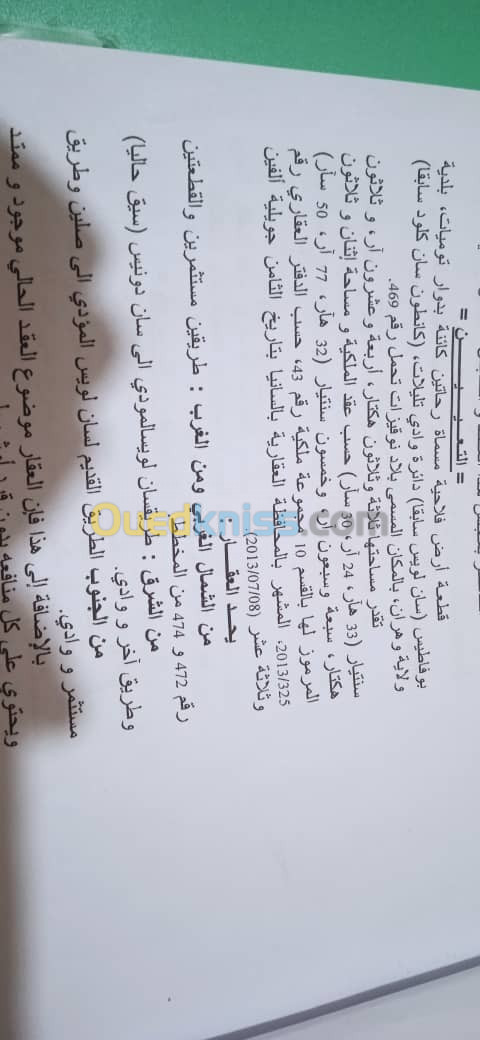 = التعـيـيـــــن =
قطعة أرض فلاحية مسماة رحاتين كائنة بدوار توميات، بلدية
بوفاطيس (سان لويس سابقا) دائرة وادي تليلات، (كانطون سان كلود سابقا)
ولاية وهران، بالمكان المسمى بلاد نوفيرات تحمل رقم 469.
تقدر مساحتها ثلاثة وثلاثون هكتار، أربعة وعشرون آر، و ثلاثون
سنتيار (33 هآر، 24 آر، 30 سآر) حسب عقد الملكية و مساحة إثنان و ثلاثون
هكتار، سبعة وسبعون آر، وخمسون سنتيار (32 هآر، 77 آر، 50 سآر)
المرموز لها بالقسم 10 مجموعة ملكية رقم 43، حسب الدفتر العقاري رقم
2013/325، المشهر بالمحافظة العقارية بالسانيا بتاريخ الثامن جويلية ألفين
وثلاثة عشر (2013/07/08)
يحد العقار :
من الشمال الغربي ومن الغرب : طريقين مستثمرين والقطعتين
رقم 472 و 474 من المخطط
من الشرق : طريق سان لويس المودي الى سان دونيس (سيق حاليا)
وطريق آخر و وادي.
من الجنوب الطريق القديم لسان لويس المؤدي الى صلين وطريق
مستثمر و وادي.
بالإضافة إلى هذا فإن العقار موضوع العقد الحالي موجود و ممتد
ويحتوي على كل منافعه بدون
Ouedkniss.com